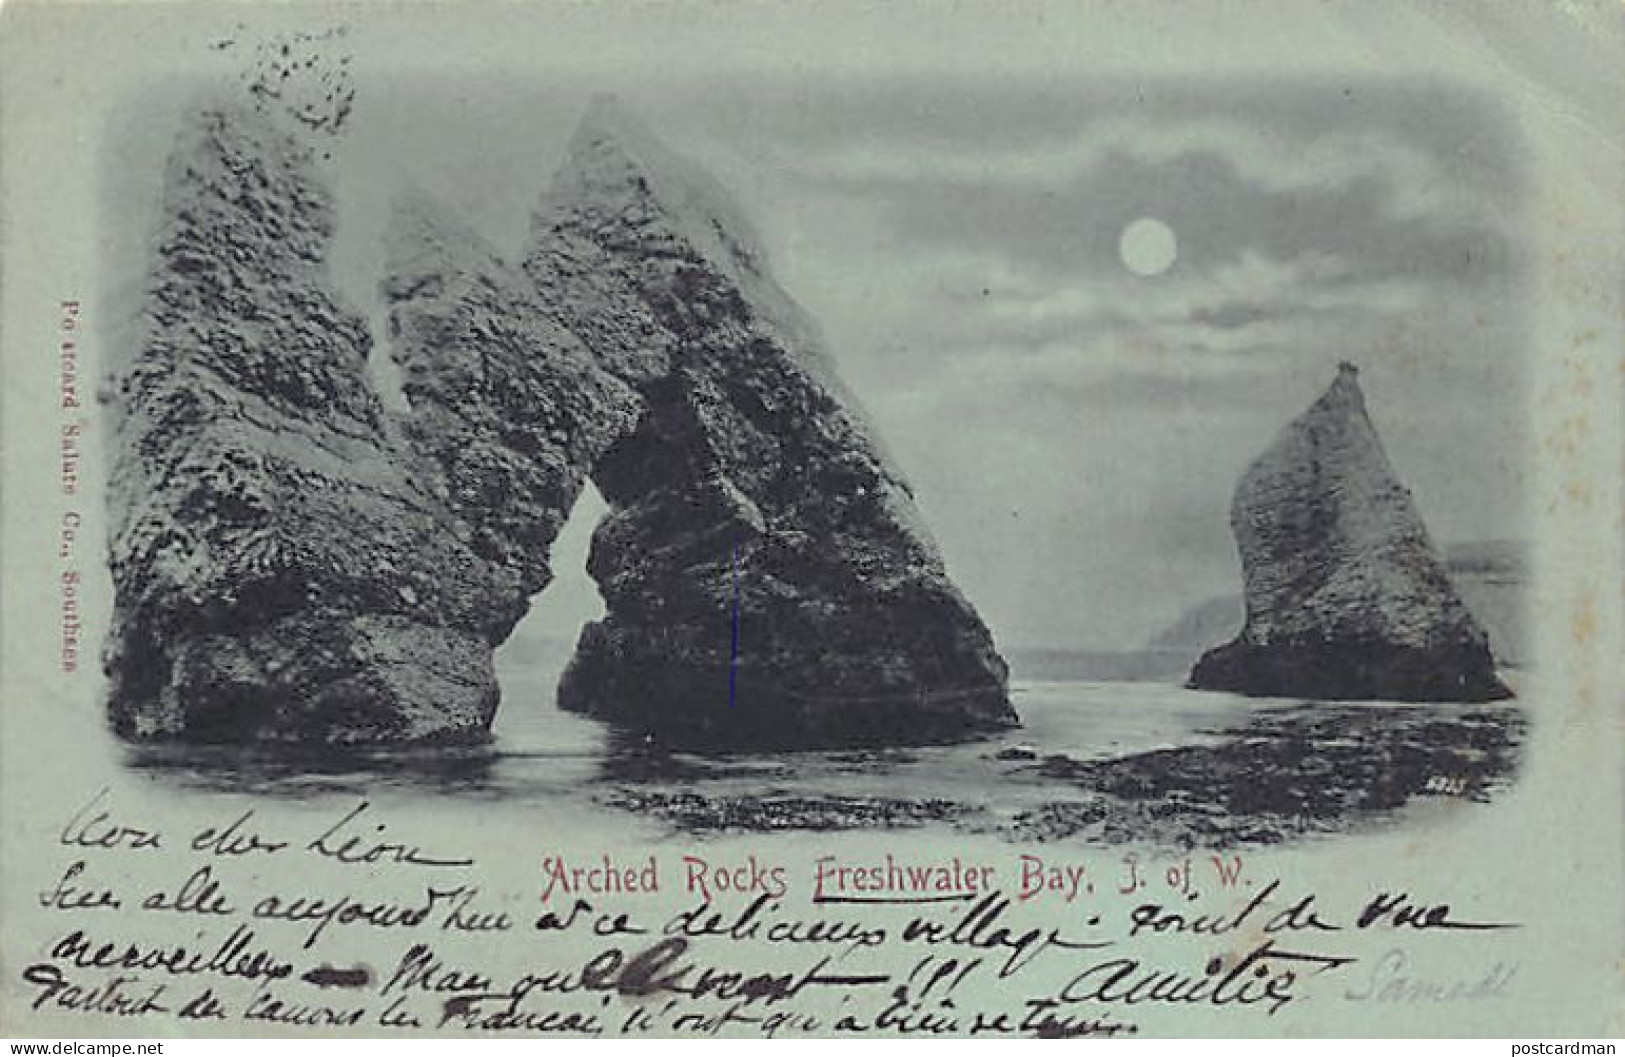 Postcard Salute Co., Southsea
5235
Arched Rocks Freshwater Bay, I. of W.
Mon cher Léon
Suis allé aujourd'hui à ce délicieux village. Point de vue
merveilleux — Mais quel vent — !!! Amitiés Samedi
Partout des canons les Français n'ont qu'à bien se tenir.
postcardman
www.delcampe.net